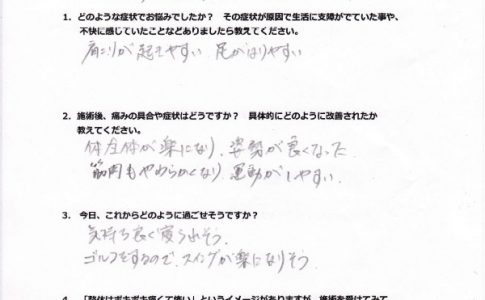 1. どのような症状でお悩みでしたか？ その症状が原因で生活に支障がでていた事や、
不快に感じていたことなどありましたら教えてください。
肩こりが起きやすい 足がはりやすい
2. 施術後、痛みの具合や症状はどうですか？ 具体的にどのように改善されたか
教えてください。
体全体が楽になり、姿勢が良くなった
筋肉もやわらかくなり 運動がしやすい。
3. 今日、これからどのように過ごせそうですか？
気持ち良く寝られそう。
ゴルフをするので、スイングが楽になりそう
4. 「整体はボキボキ痛くて怖い」というイメージがありますが、施術を受けてみて